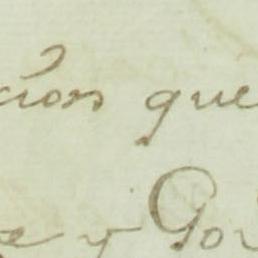 cion que
e y Go